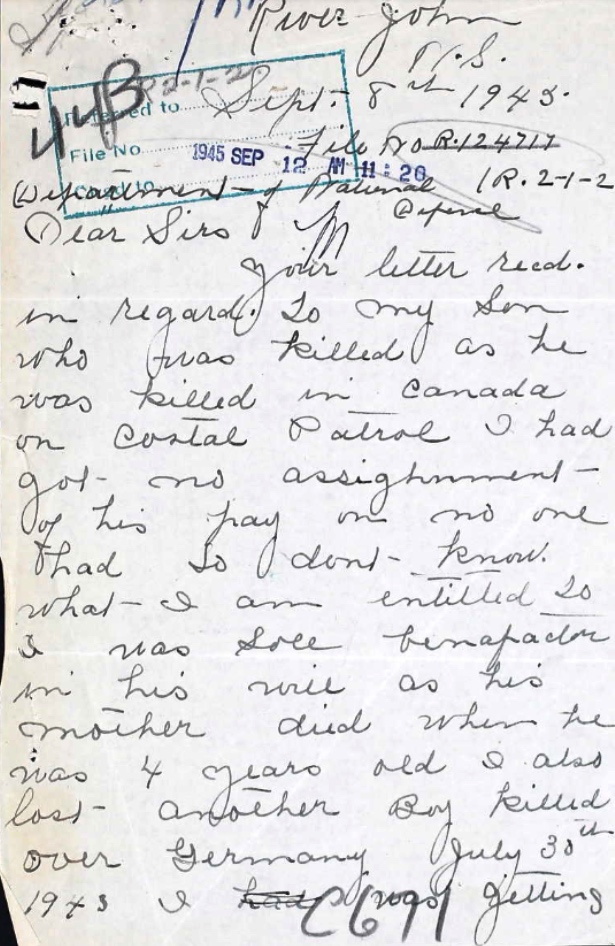 River John
N.S.
Sept. 8th 1945.
44B
R2-1-2
Referred to
File No R.124717
File No.
1945 SEP 12 AM 11:20
1R.2-1-2
Department of National
Defense
Dear Sirs
your letter recd.
in regard. to my Son
who was killed as he
was killed in Canada
on Costal Patrol I had
got no assighnment
of his pay or no one
had so dont know.
what I am entitled to
I was Sole benafactor
in his will as his
mother died when he
was 4 years old I also
lost another Boy killed
over Germany July 30th
1943 I had was getting
C6771